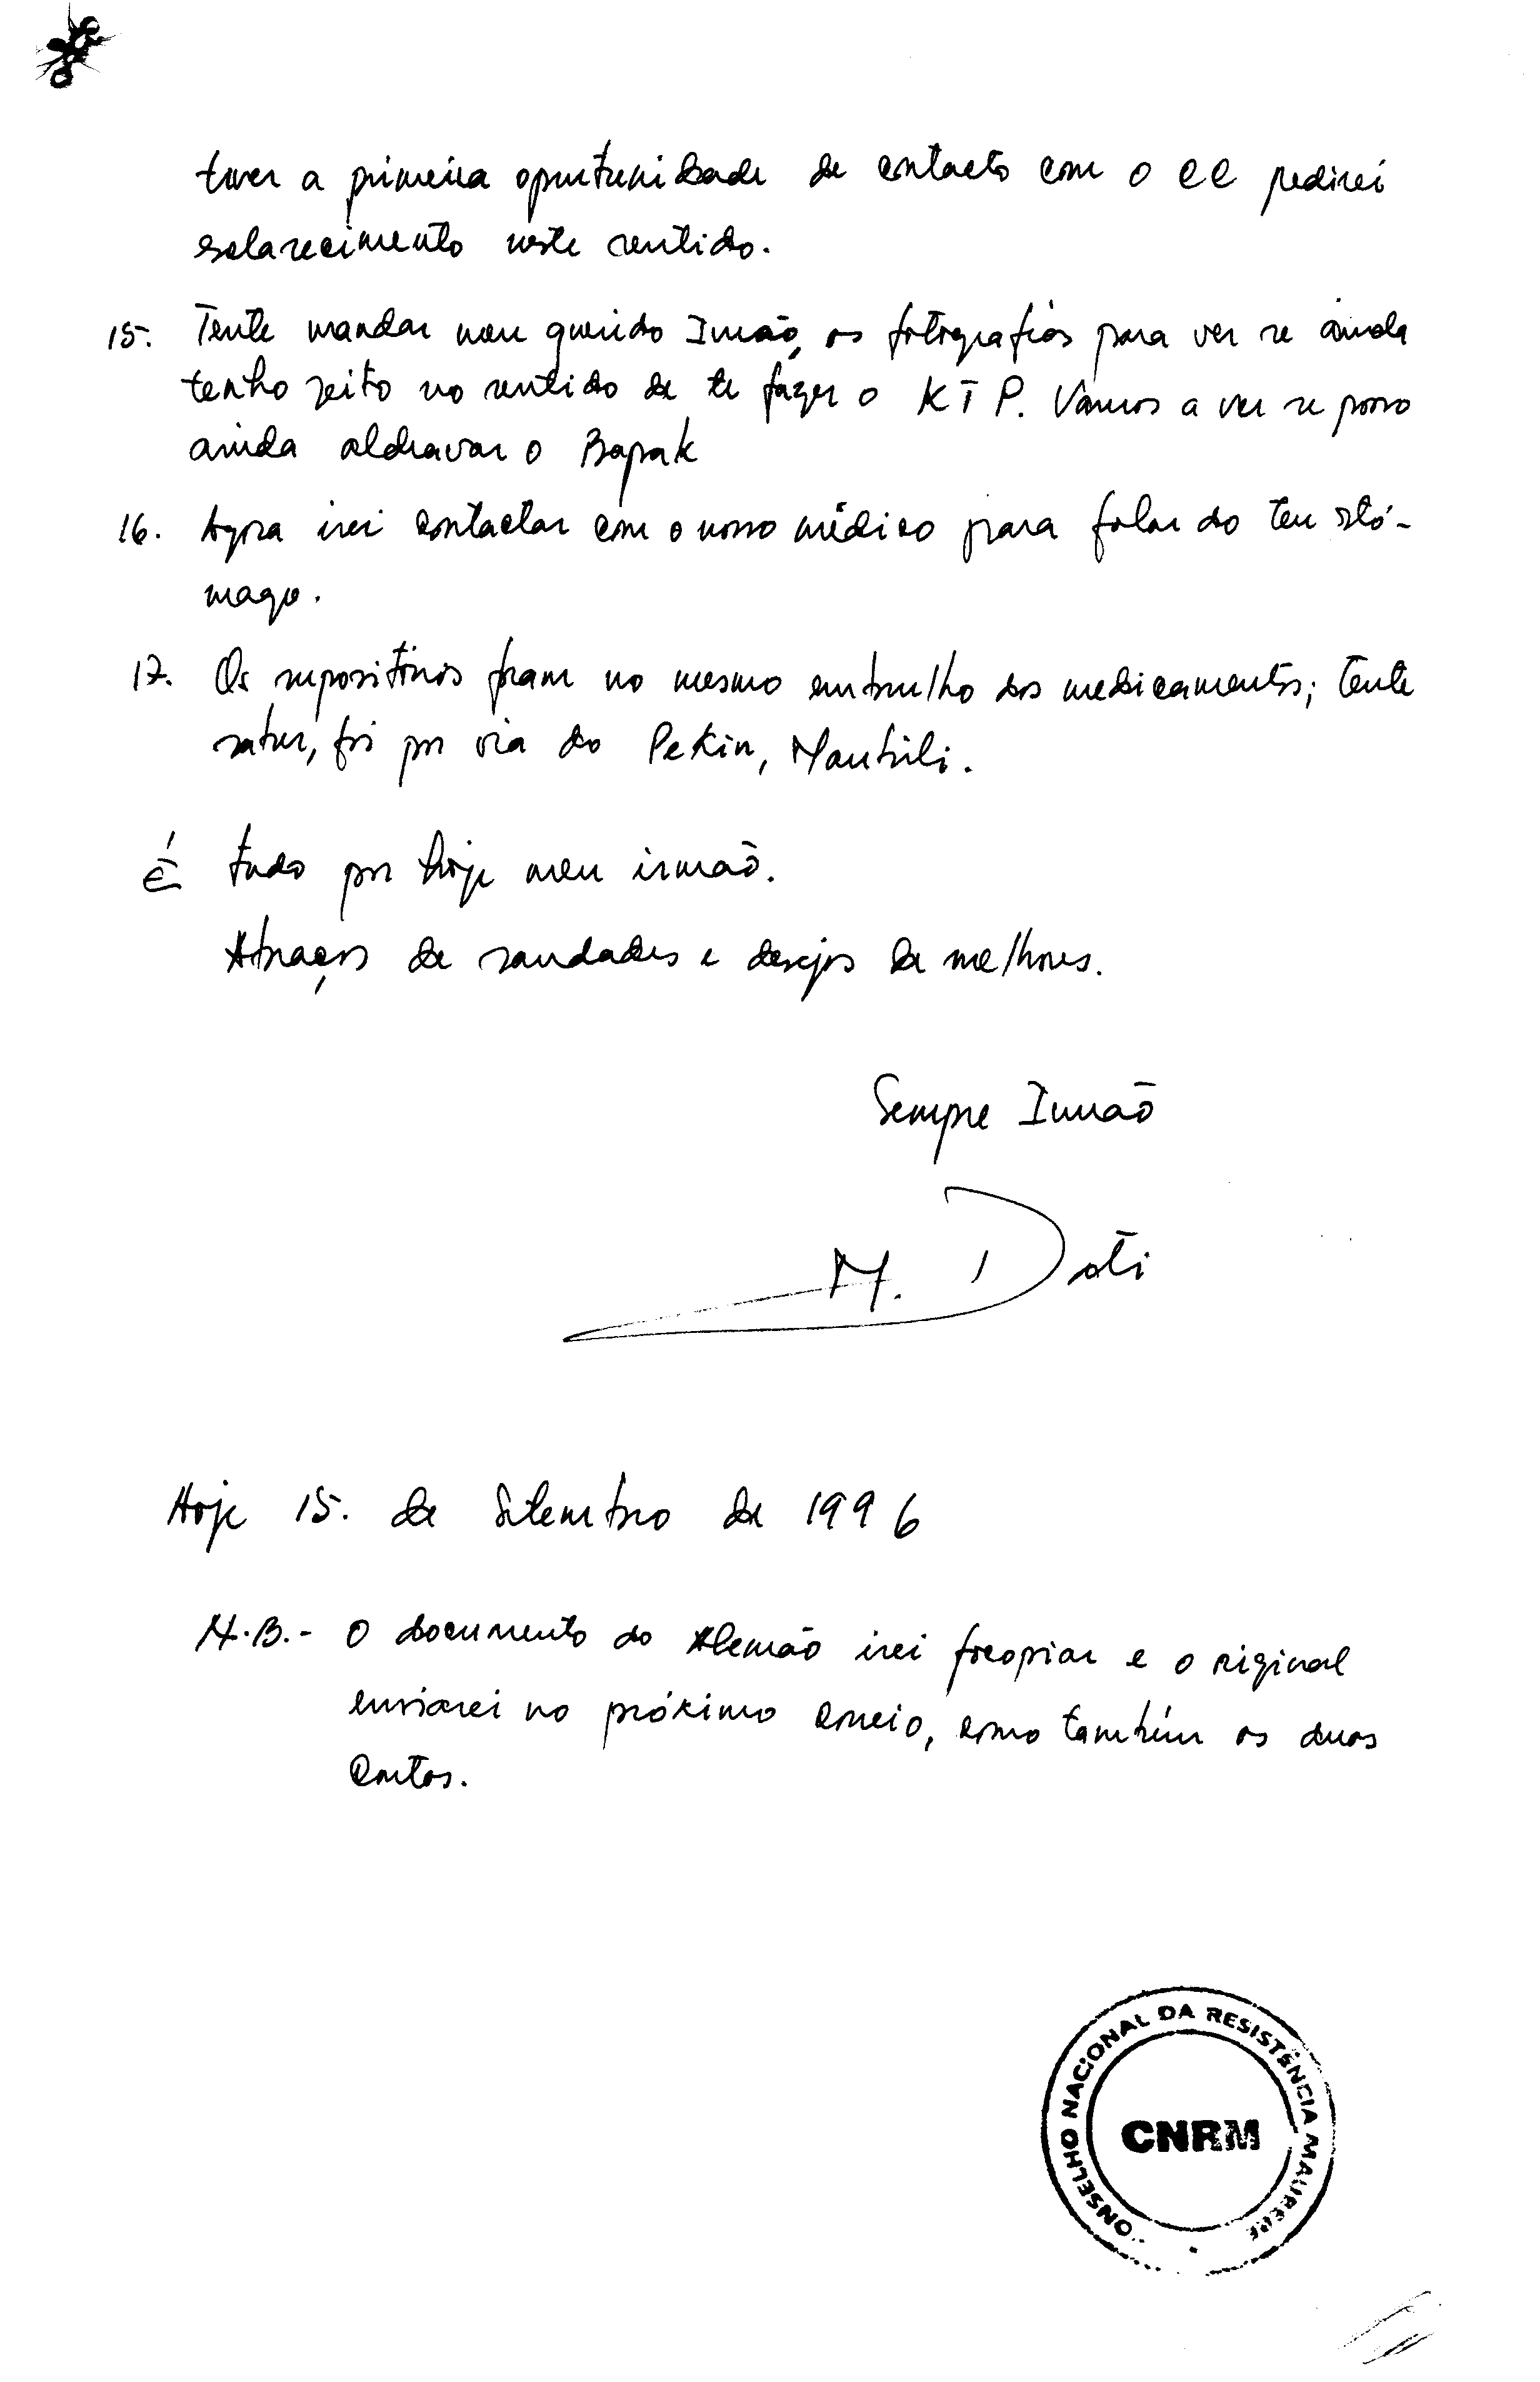 tiver a primeira oportunidade de contacto com o CC pedirei
esclarecimento neste sentido.
15. Tente mandar meu querido Irmão, as fotografias para ver se ainda
tenho jeito no sentido de te fazer o KTP. Vamos a ver se posso
ainda aldravar o Bapak
16. Agora irei contactar com o nosso médico para falar do teu estó-
mago.
17. Os supositórios foram no mesmo embrulho dos medicamentos; tente
saber, foi por via do Pekin, Mantuli.
É tudo por hoje meu irmão.
Abraços de saudades e desejos de melhores.
Sempre Irmão
M. Dati
Hoje 15. de Setembro de 1996
N.B.- O documento do Alemão irei focopiar e o original
enviarei no próximo correio, como também as duas
Cartas.
CONSELHO NACIONAL DA RESISTÊNCIA MAUBERE
CNRM